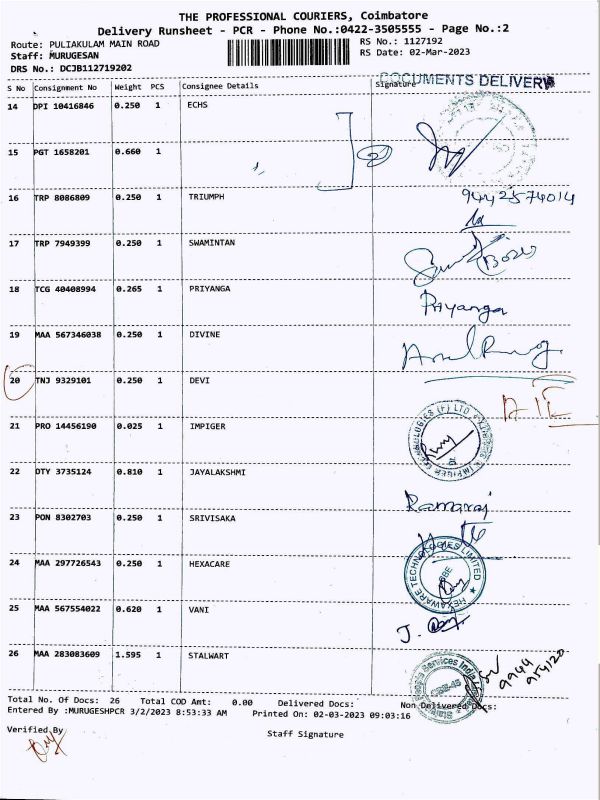 THE PROFESSIONAL COURIERS, Coimbatore
Delivery Runsheet - PCR - Phone No.:0422-3505555 - Page No.:2
Route: PULIAKULAM MAIN ROAD
RS No.: 1127192
Staff: MURUGESAN
RS Date: 02-Mar-2023
DRS No.: DCJB112719202
DOCUMENTS DELIVERY
S No Consignment No Weight PCS Consignee Details Signature
14 DPI 10416846 0.250 1 ECHS
15 PGT 1658201 0.660 1
2
16 TRP 8086809 0.250 1 TRIUMPH 9442574014
17 TRP 7949399 0.250 1 SWAMINTAN
18 TCG 40408994 0.265 1 PRIYANGA Priyanga
19 MAA 567346038 0.250 1 DIVINE
20 TNJ 9329101 0.250 1 DEVI
21 PRO 14456190 0.025 1 IMPIGER
22 DTY 3735124 0.810 1 JAYALAKSHMI Ramaraj
23 PON 8302703 0.250 1 SRIVISAKA
24 MAA 297726543 0.250 1 HEXACARE
HEXAWARE TECHNOLOGIES LIMITED
25 MAA 567554022 0.620 1 VANI
26 MAA 283083609 1.595 1 STALWART
Total No. Of Docs: 26 Total COD Amt: 0.00 Delivered Docs: Non Delivered Docs:
Entered By :MURUGESHPCR 3/2/2023 8:53:33 AM Printed On: 02-03-2023 09:03:16
Verified By
Staff Signature